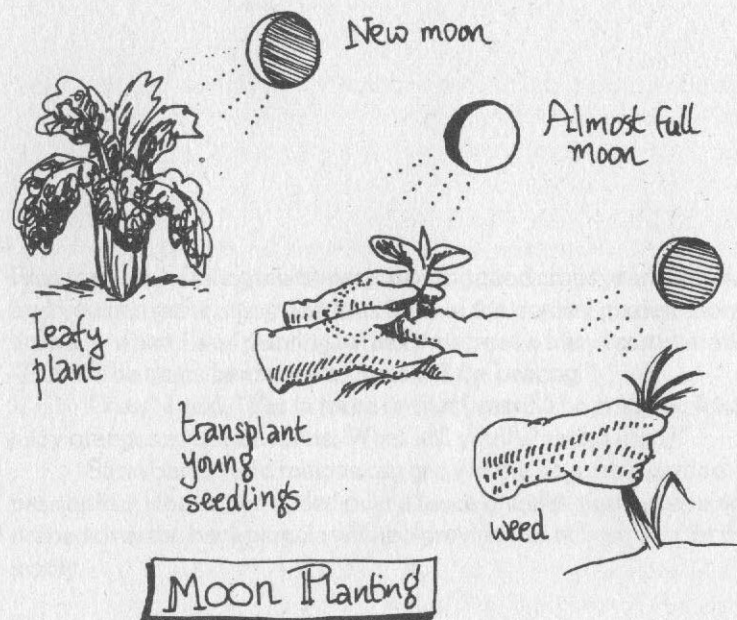 New moon
Almost full
moon
Leafy
plant
transplant
young
seedlings
weed
Moon Planting